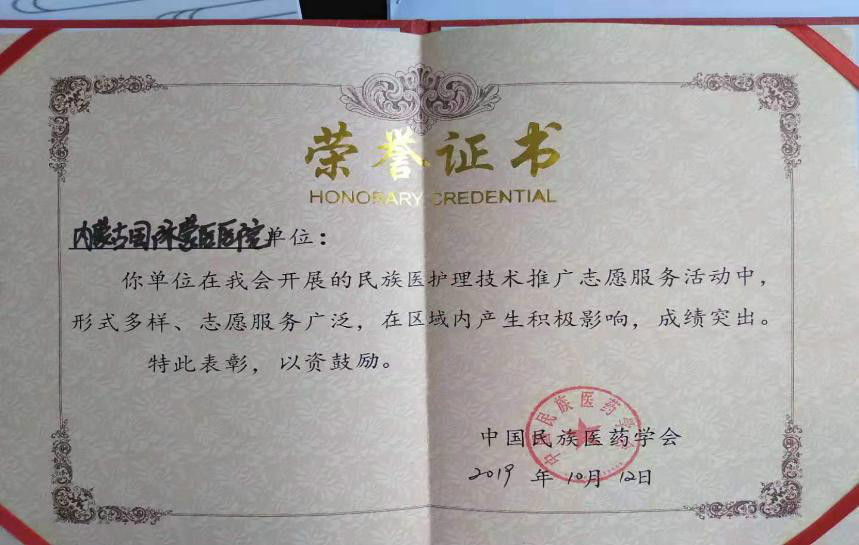 荣誉证书
HONORARY CREDENTIAL
内蒙古国际蒙医医院单位：
你单位在我会开展的民族医护理技术推广志愿服务活动中，
形式多样、志愿服务广泛，在区域内产生积极影响，成绩突出。
特此表彰，以资鼓励。
中国民族医药学会
中国民族医药学会
2019 年 10月 12日